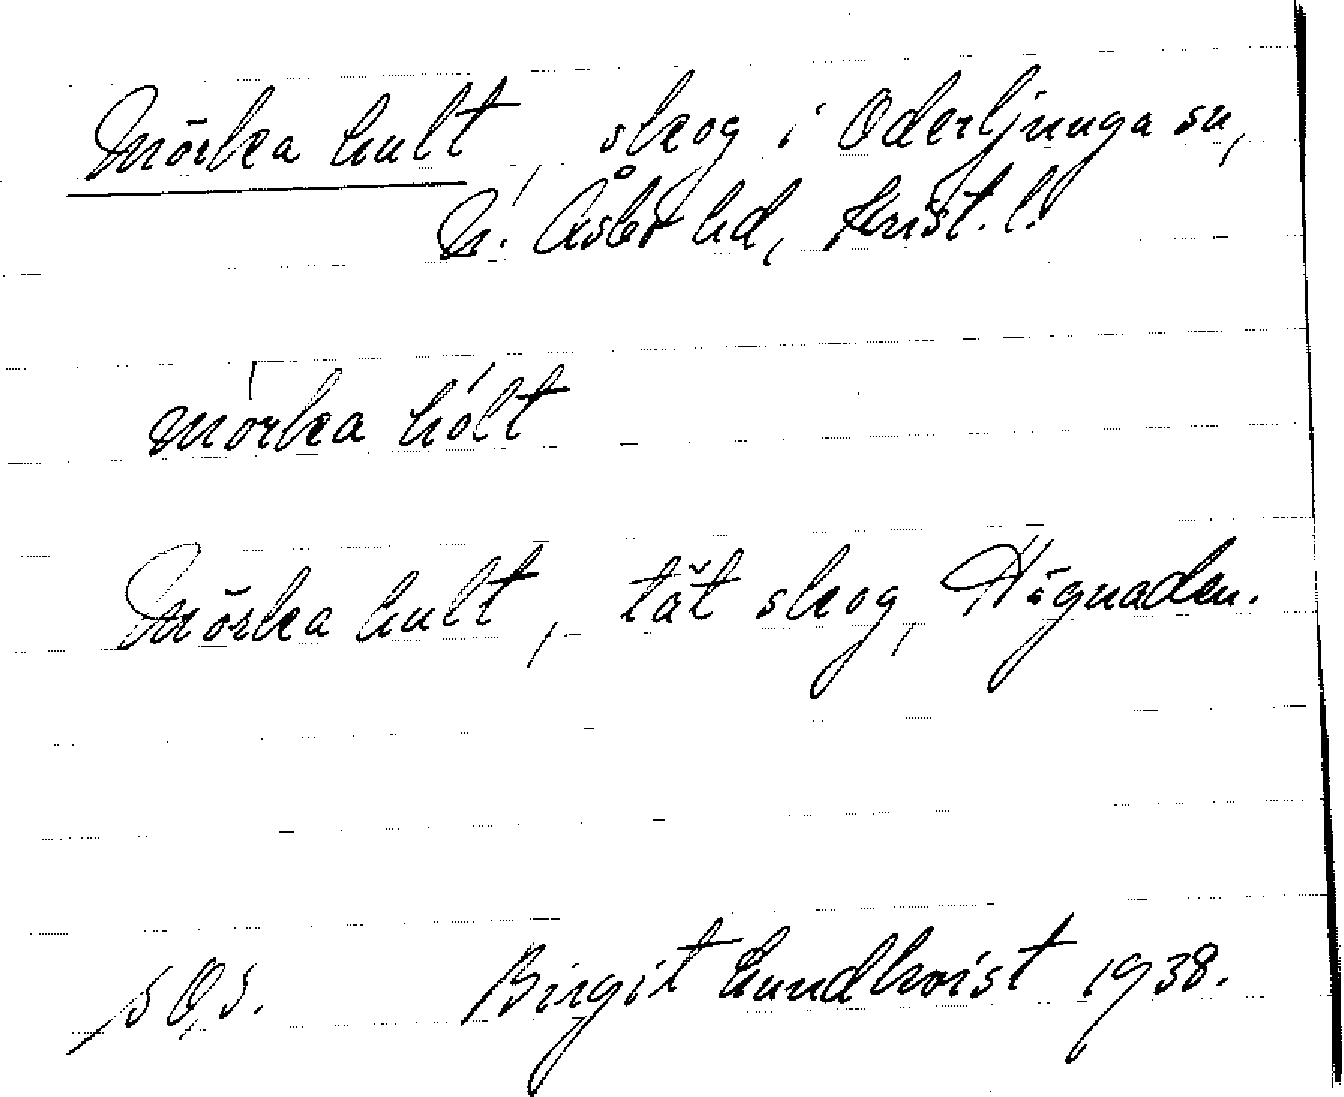 Mörka hult, skog i Oderljunga sn,
N. Åsbo hd, Krist. l.
mörka hólt
Mörka hult, tät skog, Hägnaden.
Birgit Lundkvist 1938.